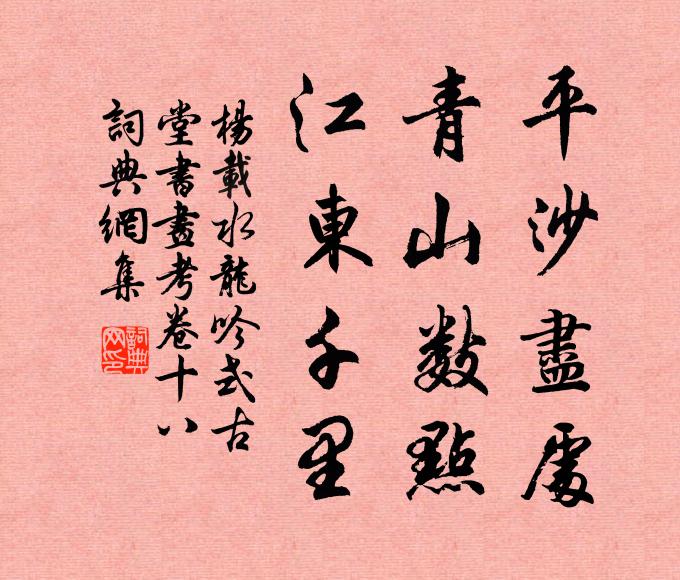 平沙盡處
青山數點
江東千里
楊載水龍吟式古
堂書畫考卷十八
詞典網集
詞典
网印